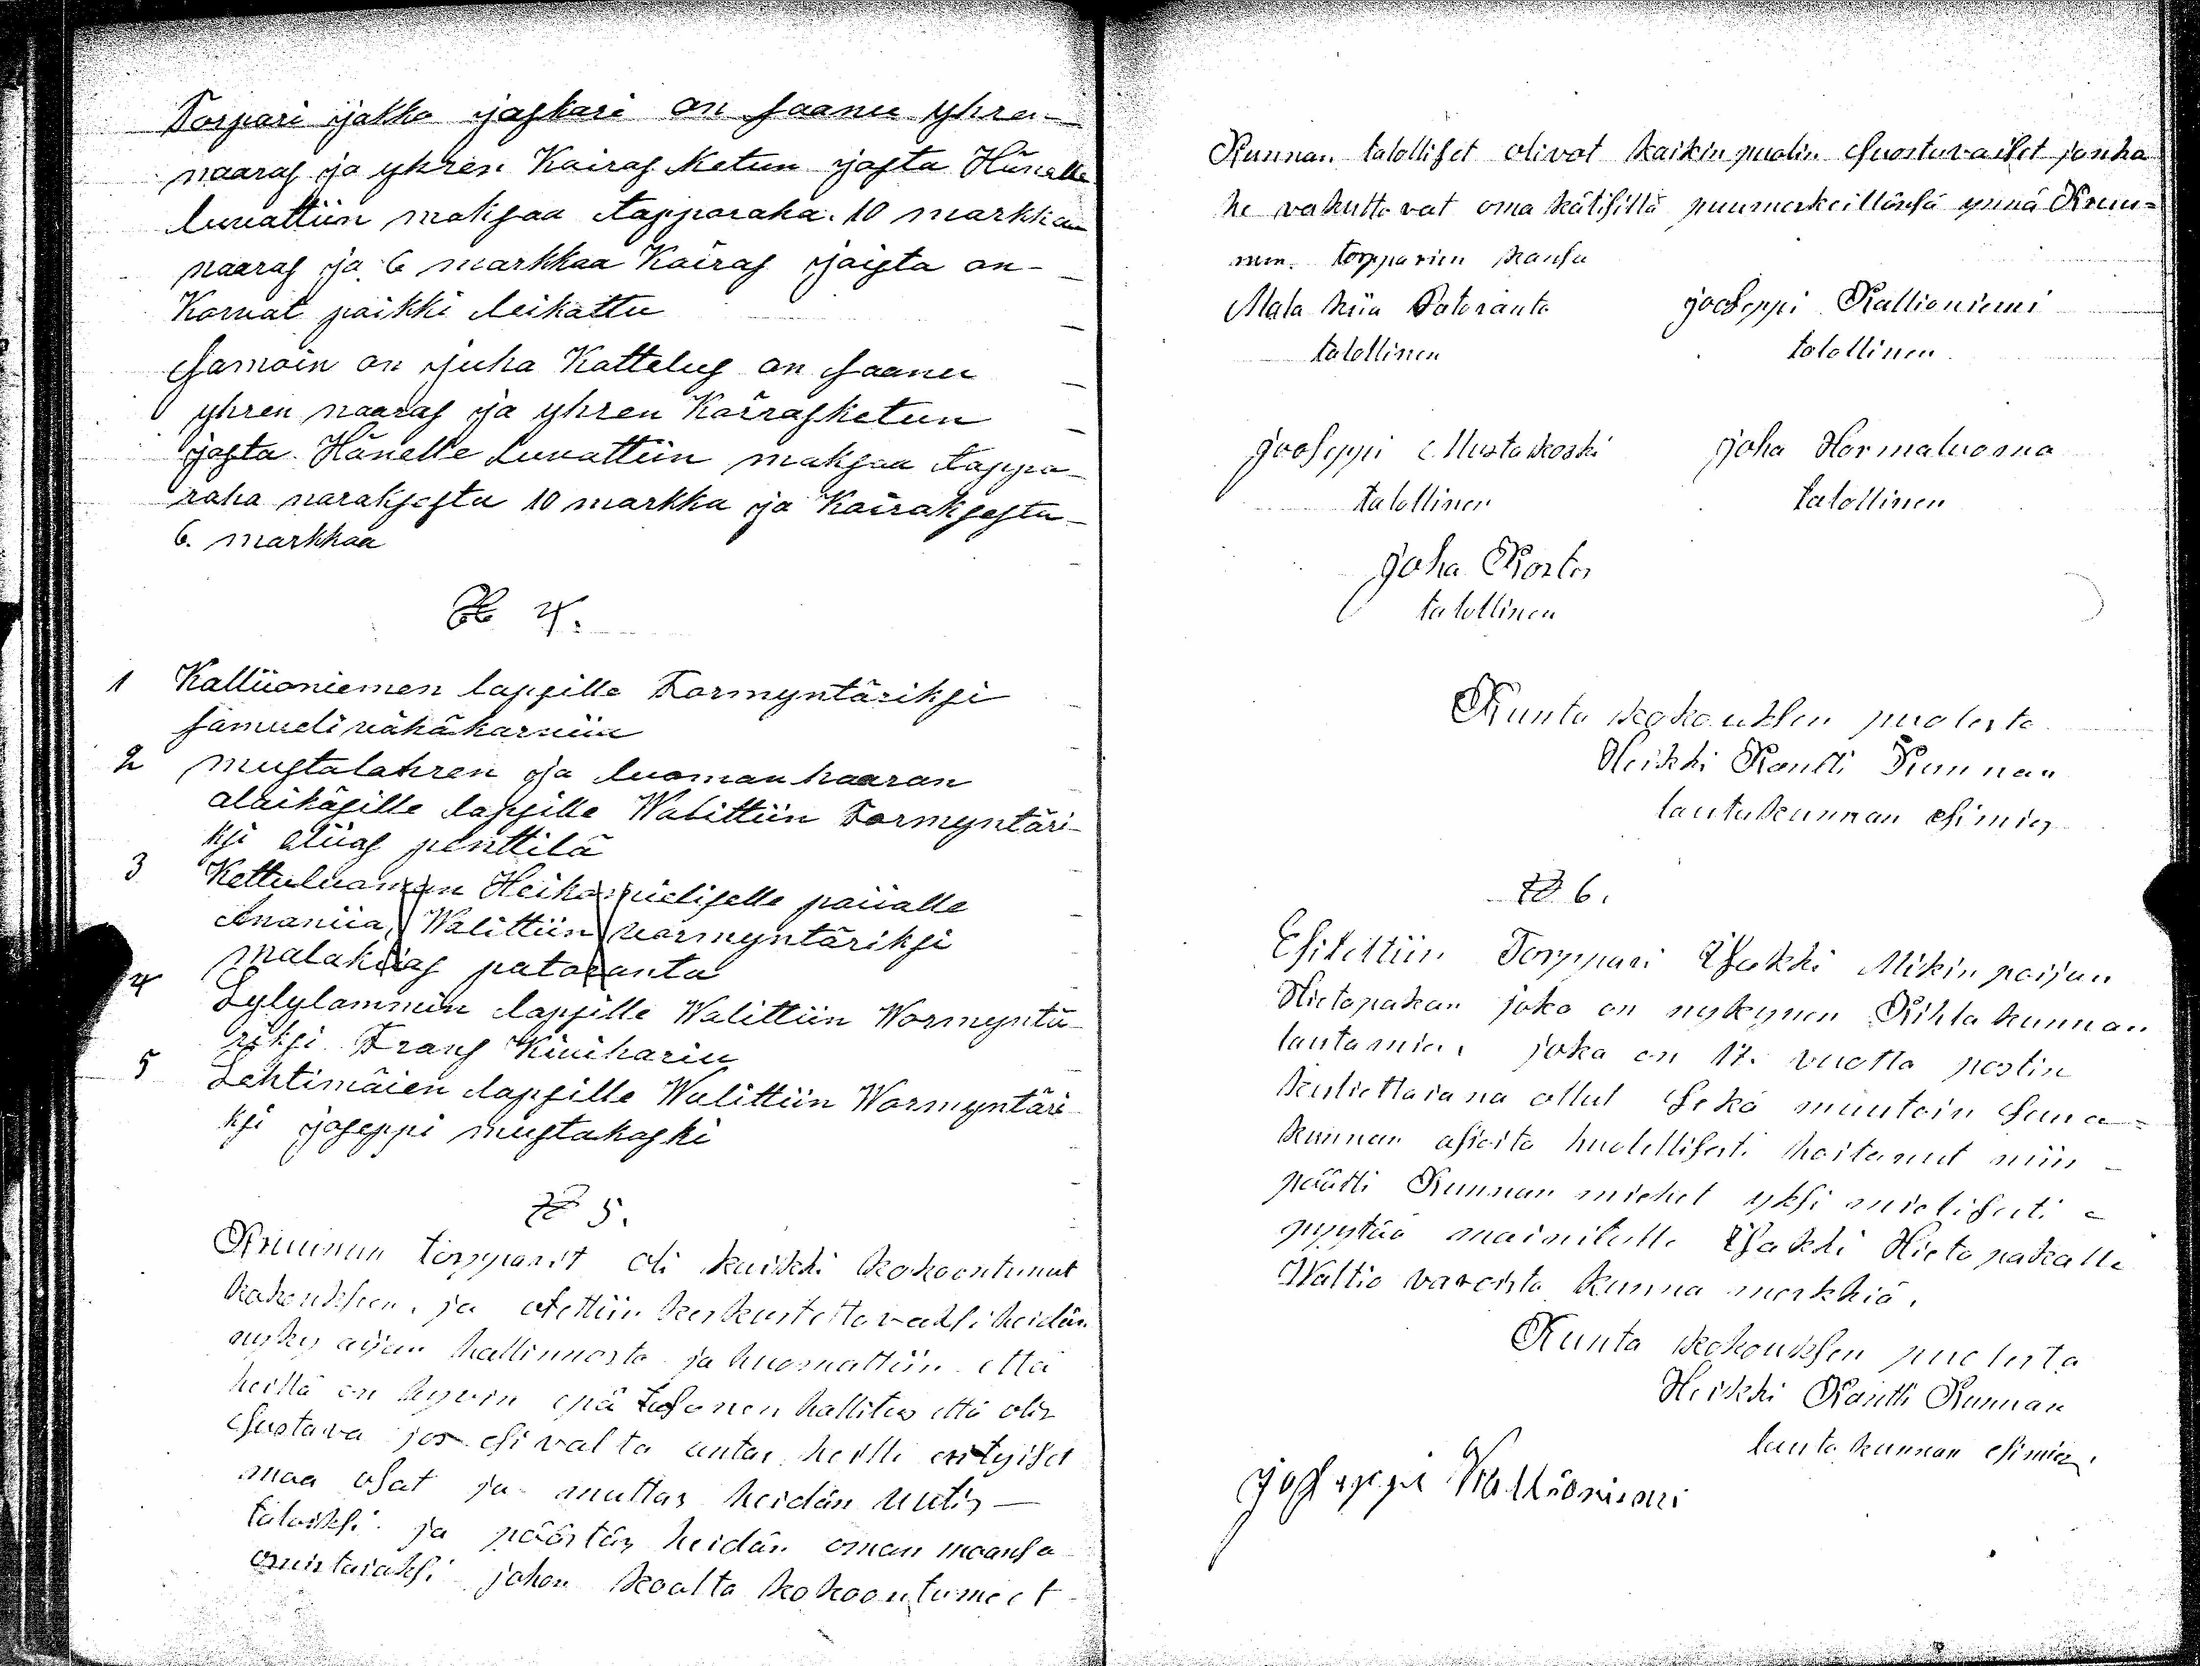 Torpari jakko jaskari on saanu yhren
naaras ja yhren Koiras Ketun josta Hänelle
luvattiin maksaa tapporaha. 10 markkaa
naaras ja 6 markkaa Koiras joista on
Korvat poikki leikattu
samoin on juha Kattelus on saanu
yhren naaras ja yhren Koirasketun
josta Hänelle luvattiin maksaa tappo
raha naraksesta 10 markka ja Koiraksesta
6. markkaa
§ 4.
1 Kallioniemen lapsille Formyntäriksi
samueli vähäkarviia
2 mustalahren ja luomanhaaran
alaikäsille lapsille Walittiin Formyntäri-
ksi eliias penttilä
3 Kettuluoman Heikomieliselle poiialle
Ananiia, Walittiin vormyntäriksi
malakiias patoranta
4 Lylylammin lapsille Walittiin Wormyntä
riksi Frans Kivihariu
5 Lehtimäien lapsille Walittiin Wormyntäri
ksi joseppi mustakoski
§ 5.
Kruunun torpparit oli kaikki kokoontunut
kokoukseen, ja otettiin keskusteltavaksi heidän
nyky aijan hallinnosta ja huomattiin että
heillä on hyvin epä tasanen hallitus että olis
suotava jos esivalta antas heille erityiset
maa osat ja muttas heidän uutis
taloiksi ja päästäs heidän oman maansa
omistaiaksi johon koolta kokoontuneet
Kunnan talolliset olivat kaikin puolin suostuvaiset jonka
he vakuttavat oma kätisillä puumerkeillänsä ynnä Kruu-
nun torpparien kansa
Mala kiia Patoranta jooseppi Kallioniemi
talollinen talollinen
jooseppi Mustakoski joha Hormaluoma
talollinen talollinen
joha Kortes
talollinen
Kunta kokouksen puolesta
Heikki Rantti Kunnan
lautakunnan esimies
§ 6.
Esitettiin Torppari Isakki Mikin poijan
Hietapakan joka on nykynen Kihlakunnan
lautamies joka on 17. vuotta postin
kuliettaiana ollut sekä muutoin seura-
kunnan asioita huolellisesti hoitanut niin
päätti Kunnan miehet yksi mielisesti
pyytää mainitulle Isakki Hietapakalle
Waltio varoista kunnia merkkiä.
Kunta kokouksen puolesta
Heikki Rantti Kunnan
lautakunnan esimies
joseppi Kallioniemi